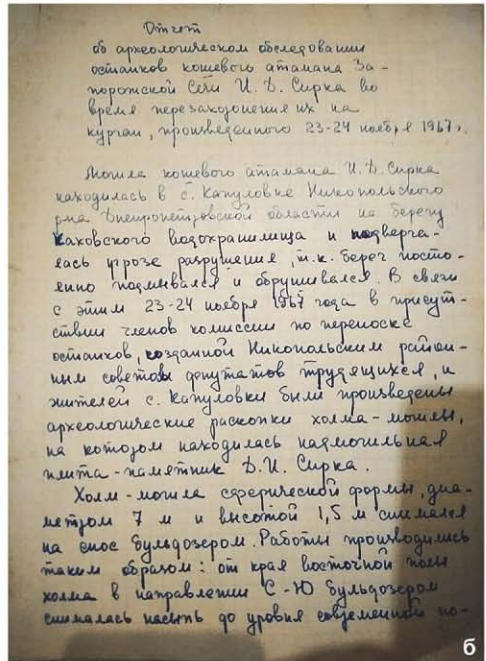 Отчет
об археологическом обследовании
останков кошевого атамана За-
порожской Сечи И. Д. Сирка во
время перезахоронения их на
курган, произведенного 23-24 ноября 1967 г.
Могила кошевого атамана И. Д. Сирка
находилась в с. Капуловке Никопольского
р-на Днепропетровской области на берегу
Каховского водохранилища и подверга-
лась угрозе разрушения, т.к. берег посто-
янно подмывался и обрушивался. В связи
с этим 23-24 ноября 1967 года в присут-
ствии членов комиссии по переноске
останков, созданной Никопольским район-
ным советом депутатов трудящихся, и
жителей с. Капуловки были произведены
археологические раскопки холма-могилы,
на котором находилась надмогильная
плита-памятник Д. И. Сирка.
Холм-могила сферической формы, диа-
метром 7 м и высотой 1,5 м снимался
на снос бульдозером. Работы производились
таким образом: от края восточной полы
холма в направлении С-Ю бульдозером
снималась насыпь до уровня современной по-
б